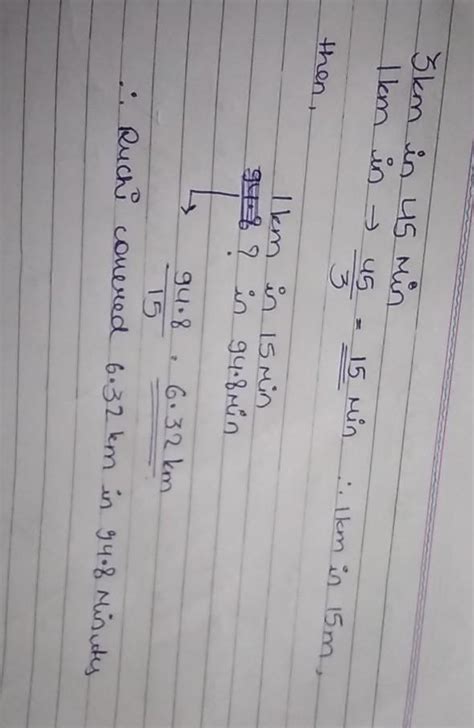 3km in 45 Min
1km in → 45/3 = 15 Min ∴ 1km in 15m,
then,
1km in 15 Min
? in 94.8 Min
94.8/15 = 6.32 km
∴ Ruchi covered 6.32 km in 94.8 Minutes